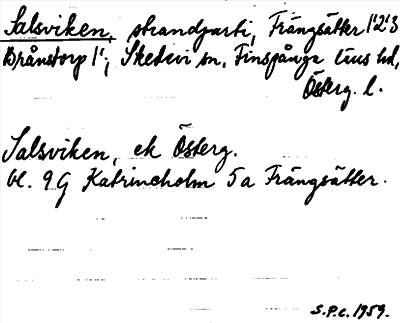 Salsviken, strandparti, Frängsätter 1'2'3
Brånstorp 1'; Skedevi sn, Finspånga läns hd,
Österg. l.
Salsviken, ek Österg.
bl. 9 G Katrineholm 5 a Frängsätter.
S.P.c. 1959.